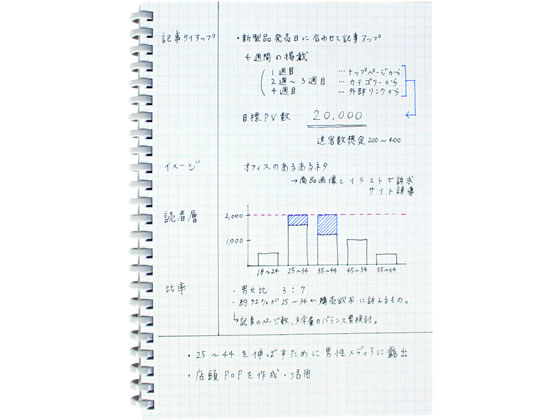 記事タイアップ
・新製品発売日に合わせて記事アップ
4週間の掲載
1週目 …トップページから
2週〜3週目 …カテゴリーから
4週目 …外部リンクから
目標PV数 20,000
送客数想定200〜400
イメージ
オフィスのあるあるネタ
→商品画像とイラストで訴求
サイト誘導
読者層
2,000
1,000
18〜24 25〜34 35〜44 45〜54 55〜64
比率
・男女比 3:7
が25〜34←購売欲求に訴えるもの。
↳記事のページ数、文字量のバランス要検討。
・25〜44を伸ばすために男性メディアに露出
・店頭POPを作成・活用